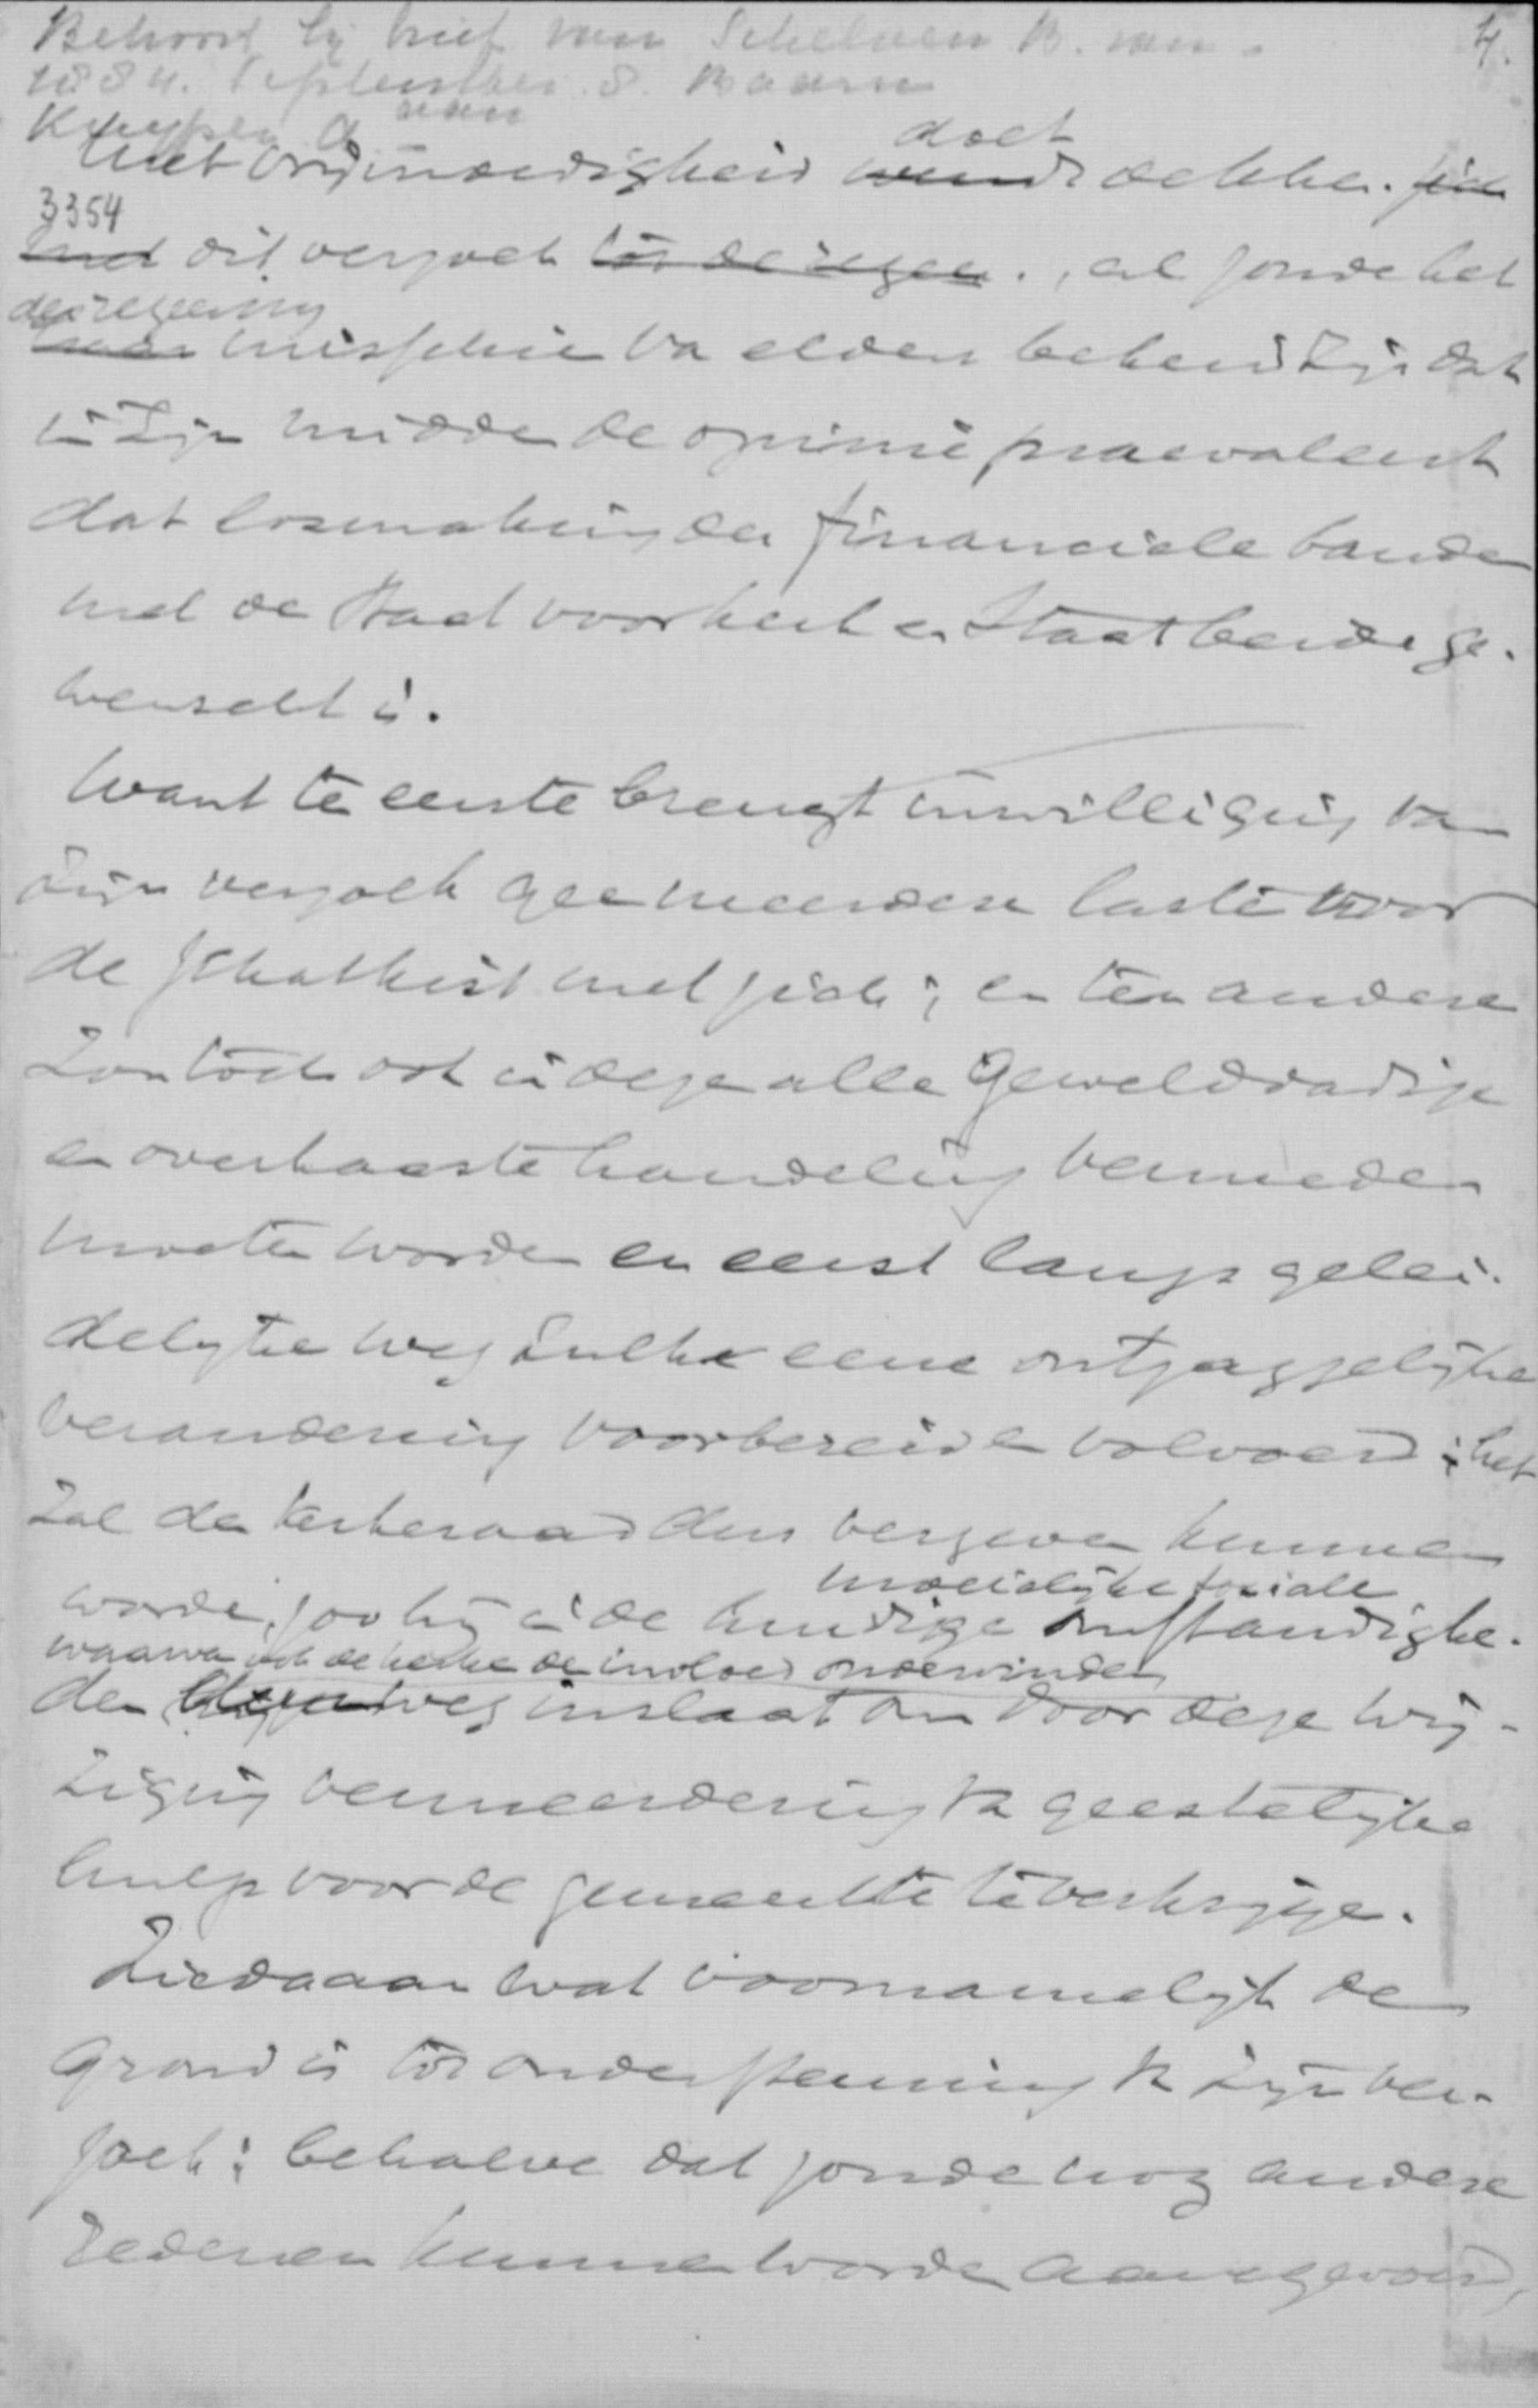 Behoort bij brief van Schelven B. van.
4.
1884. September. 8. Baarn
aan
Kuyper A
doet
Met vrijmoedigheid wendt dekke. zich
3354
met dit verzoek tot de regee. , al zonde het
der regeering
haar misschie va elders bekend zijn dat
in zijn midde de opinie praevaleert
dat losmaking der financiele bande
met de Staat voor kerk en Staat beide ge-
wenscht is.
Want te eerste brengt inwilliging va
zijn verzoek gee meerdere laste voor
de schatkist met zich; en ten andere
zou toch ook in deze alle gewelddadige
en overhaaste handeling vermeden
moete worde en eerst langs gelei-
delijke weg zulke eene ontzaggelijke
verandering voorbereid en volvoerd; het
zal de kerkeraad dus vergeve kunnen
moeielijke sociale
worde, zoo hij in de huidige omstandighe-
waarva ook de kerke de invloed ondervinden
den weg inslaat om door deze wij-
ziging vermeerdering va geestelijke
hulp voor de gemeente te verkrijge.
Ziedaaar wat voornamelijk de
grond is tot ondersteuning va zijn ver-
zoek: behalve dat zonde nog andere
redenen kunne worde aangevoerd,